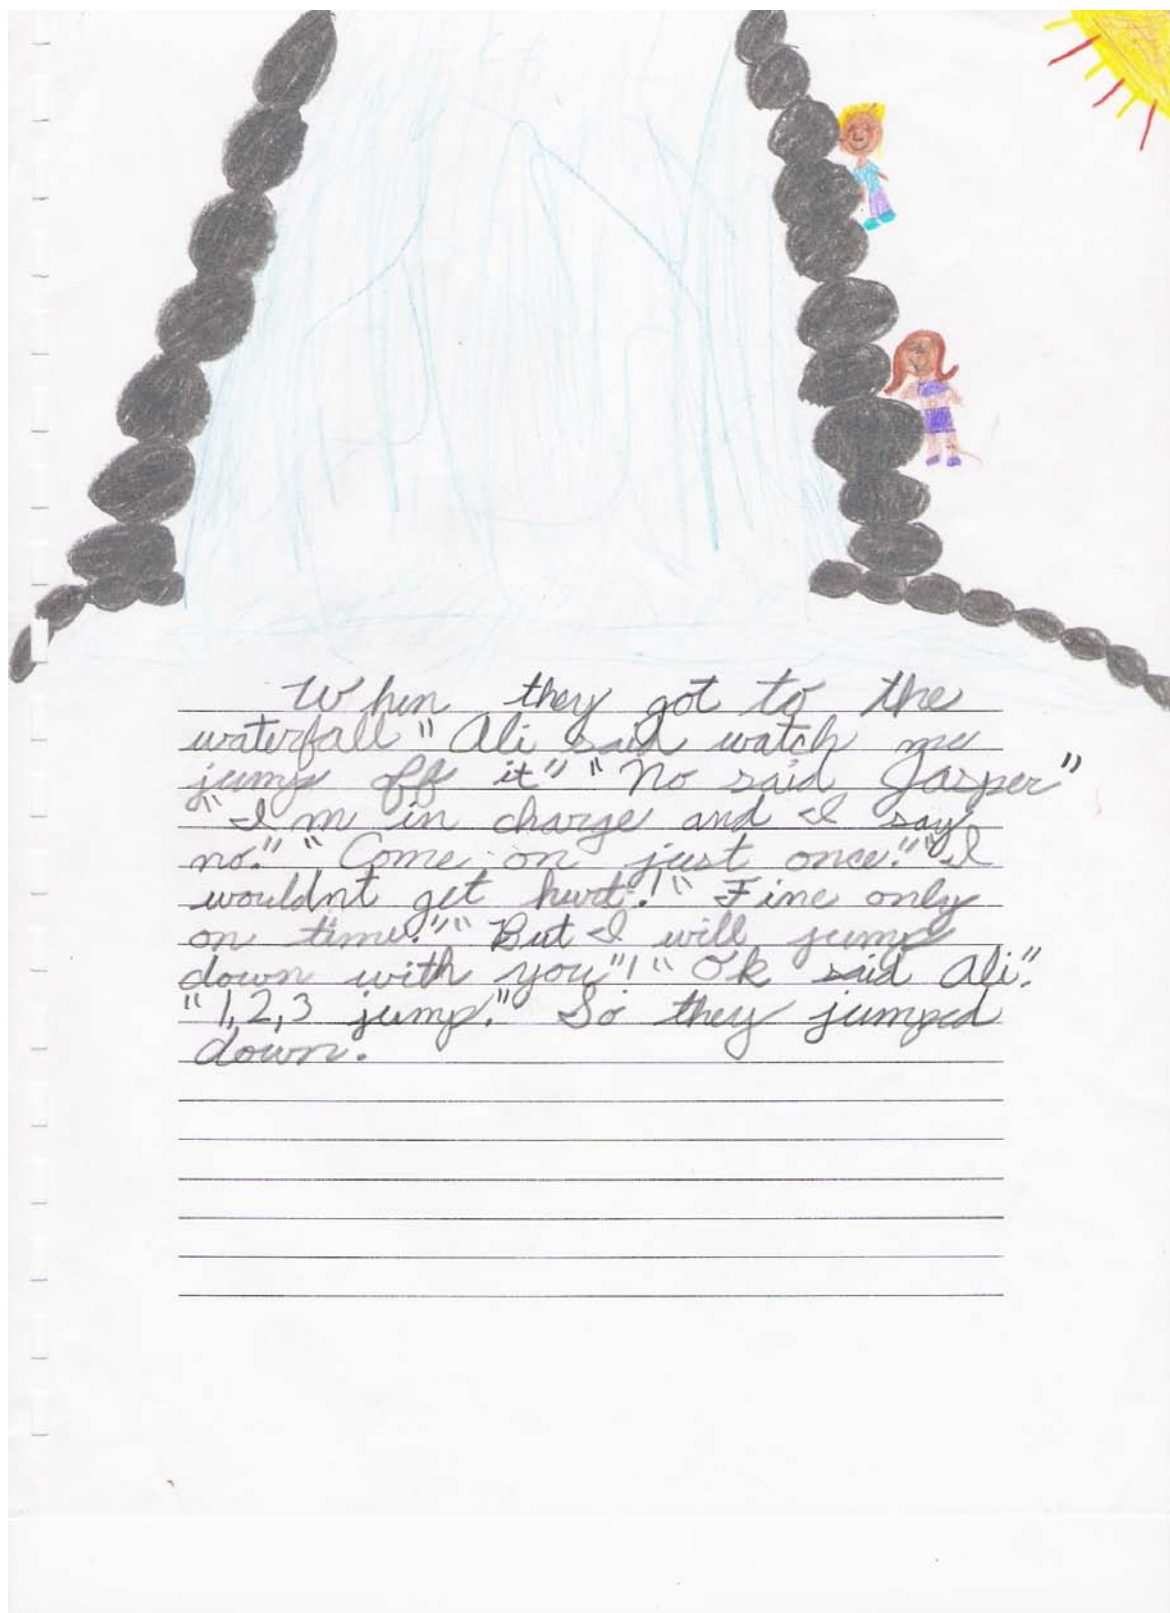 When they got to the
waterfall " Ali said watch me
jump off it" "No said Jasper"
"I'm in charge and I say
no." "Come on just once." "I
wouldnt get hurt.!" "Fine only
on time." "But I will jump
down with you"! "Ok said Ali".
"1,2,3 jump." So they jumped
down.